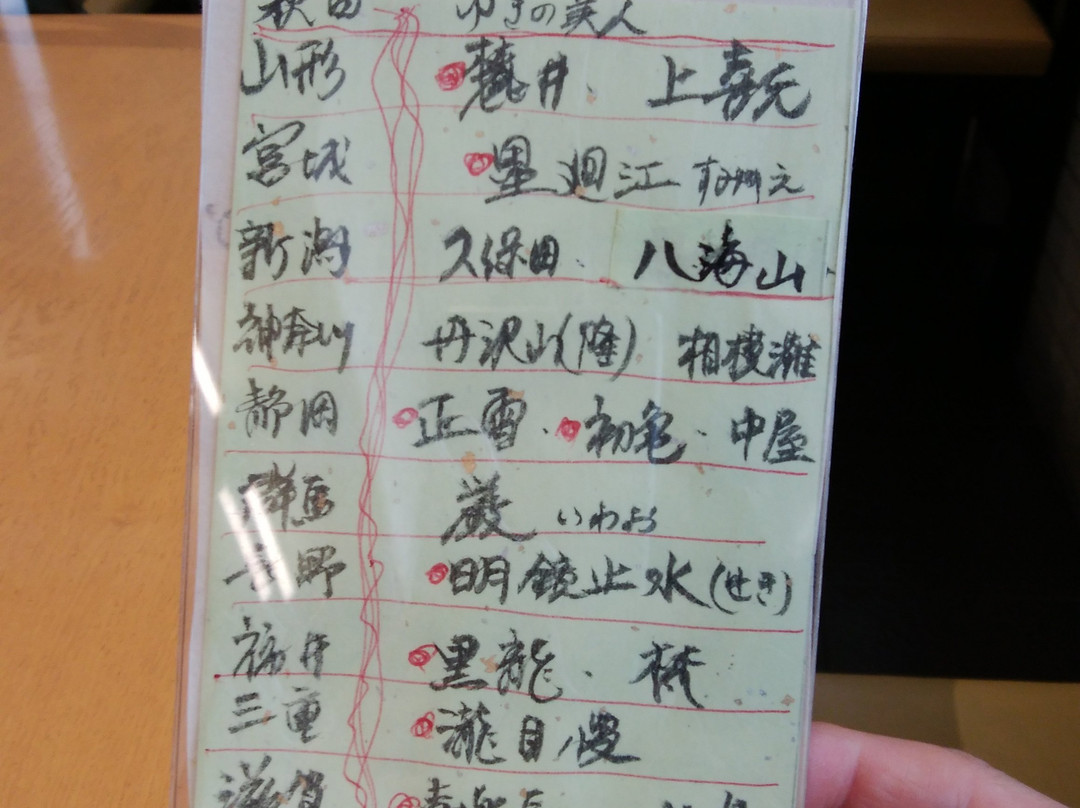 秋田 ゆきの美人
山形 麓井・ 上喜元
宮城 墨廼江 すみのえ
新潟 久保田・ 八海山・
神奈川 丹沢山(隆) 相模灘
静岡 正雪・初亀・中屋
群馬 巌 いわお
長野 明鏡止水(せき)
福井 黒龍・ 梵
三重 瀧自慢
滋賀